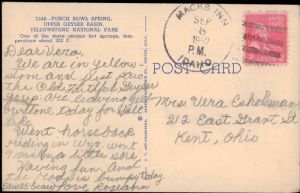 1246—PUNCH BOWL SPRING,
UPPER GEYSER BASIN,
YELLOWSTONE NATIONAL PARK
One of the more unique hot springs, tem-
perature about 202 F.
Dear Vera,
We are in Yellow-
stone and just saw
the Old Faithful Geyser
are leaving
stone today for Salt
Lake
Went horseback
riding in Wyo. went
miles, a little sore.
Having fun. And
the road is bumpy today.
Saw 25 bears Love, Rogeann
POST CARD
MACKS INN
SEP
6
P.M.
IDAHO
2 CENTS 2
Mrs Vera Eshelman
212 East Grant St
Kent, Ohio